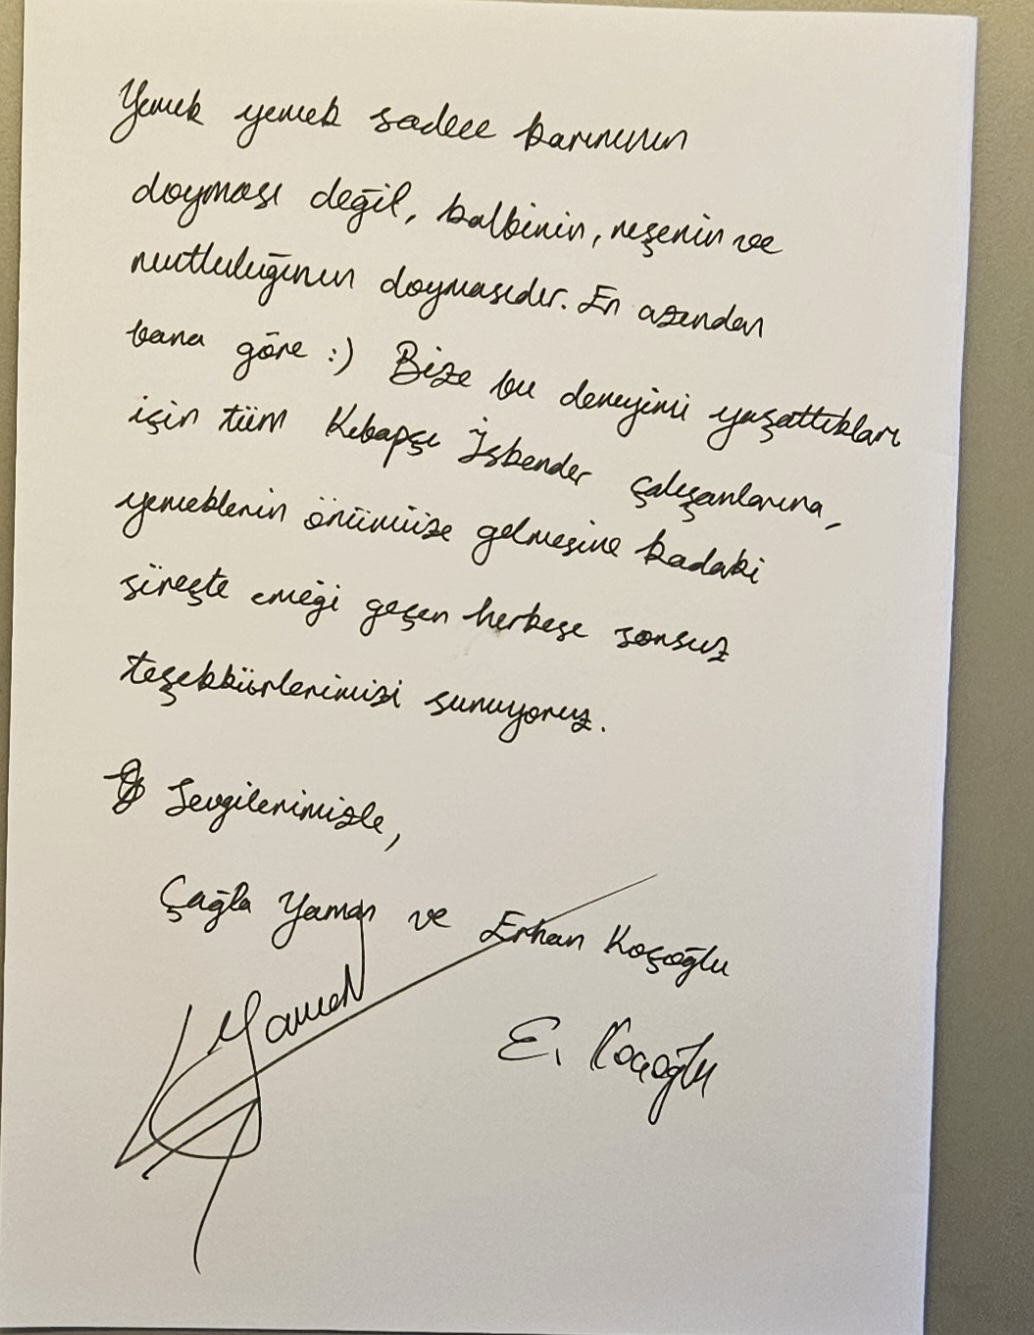 Yemek yemek sadece karınının
doyması değil, kalbinin, neşenin ve
mutluluğunun doymasıdır. En azından
bana göre :) Bize bu deneyimi yaşattıkları
için tüm Kebapçı İskender çalışanlarına,
yemeklerin önümüze gelmesine kadaki
süreçte emeği geçen herkese sonsuz
teşekkürlerimizi sunuyoruz.
Sevgilerimizle,
Çağla Yaman ve Erhan Koçoğlu
Yaman
E. Koçoğlu